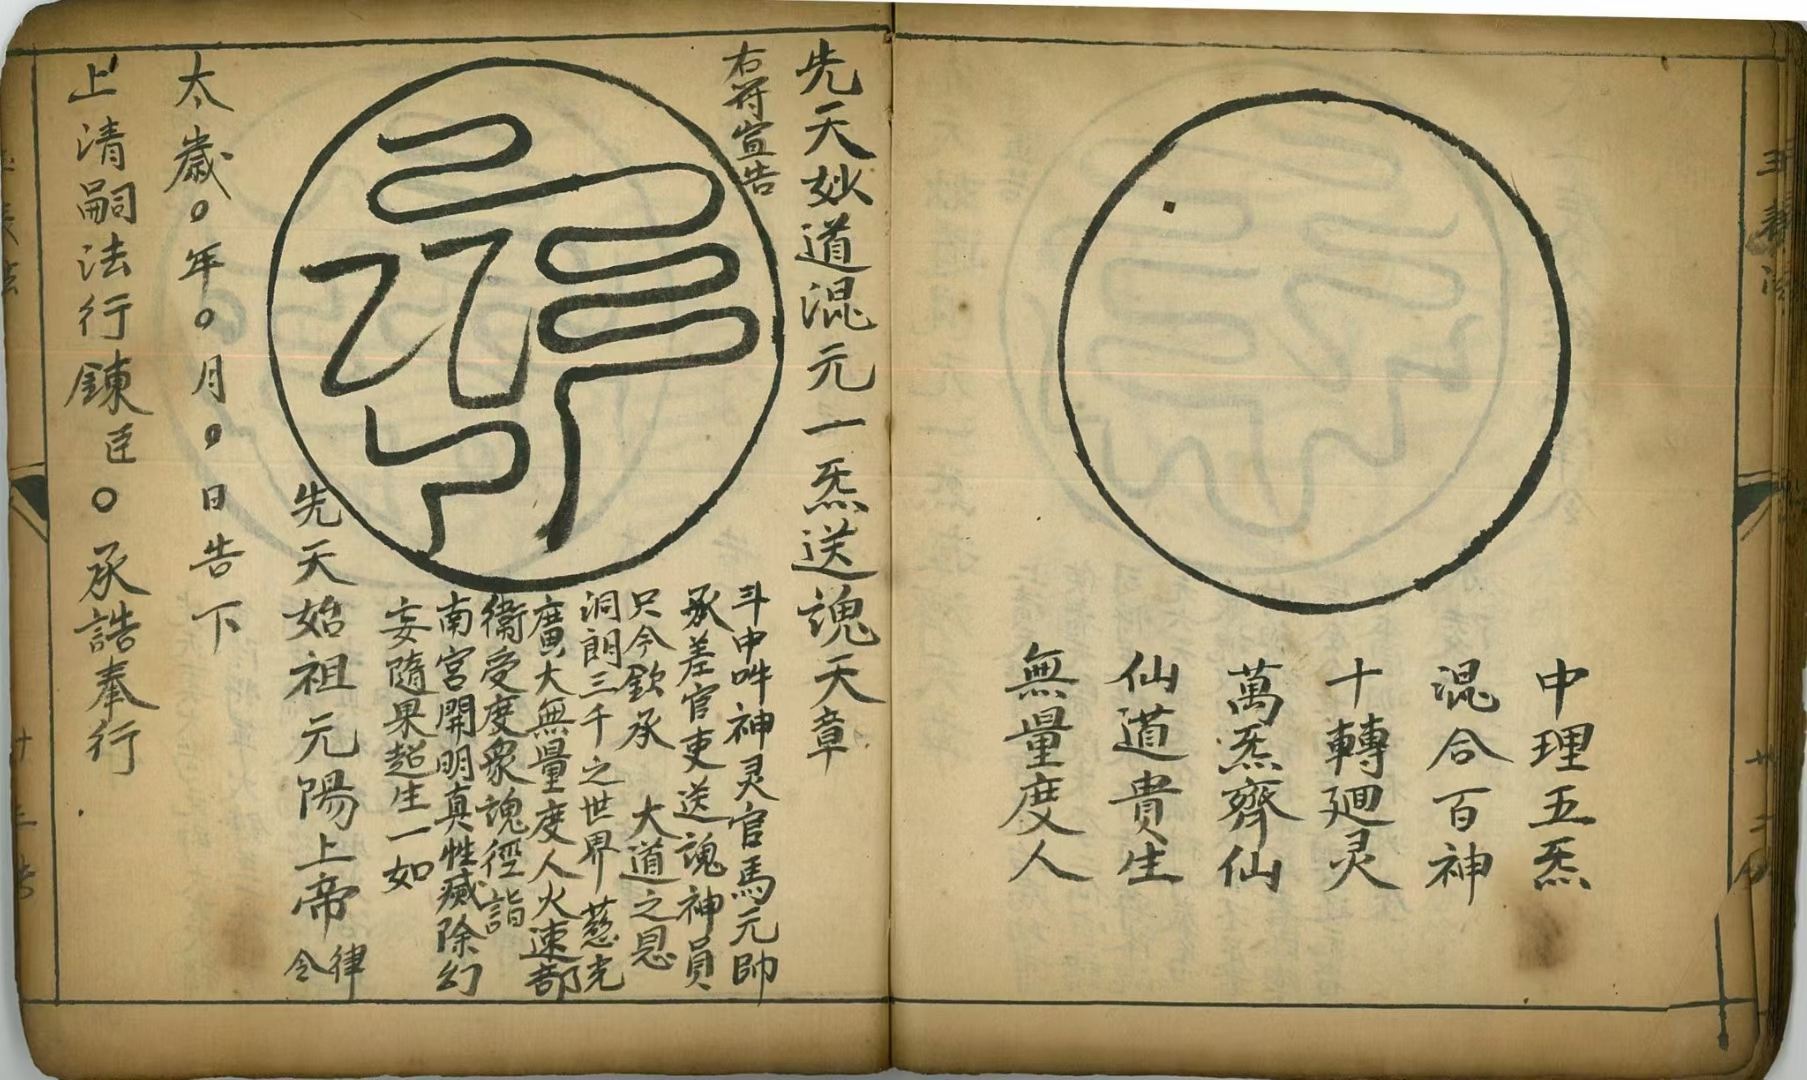 中理五炁
混合百神
十轉廻灵
萬炁齊仙
仙道貴生
無量度人
先天妙道混元一炁送魂天章
右符宣告
斗中吽神灵官馬元帥
承差官吏送魂神員
只今欽承 大道之恩
洞朗三千之世界 慈光
廣大無量度人火速部
衛受度眾魂徑詣
南宮開明真性滅除幻
妄隨果超生一如
先天始祖元陽上帝律令
太歲〇年〇月〇日告下
上清嗣法行鍊臣〇承誥奉行